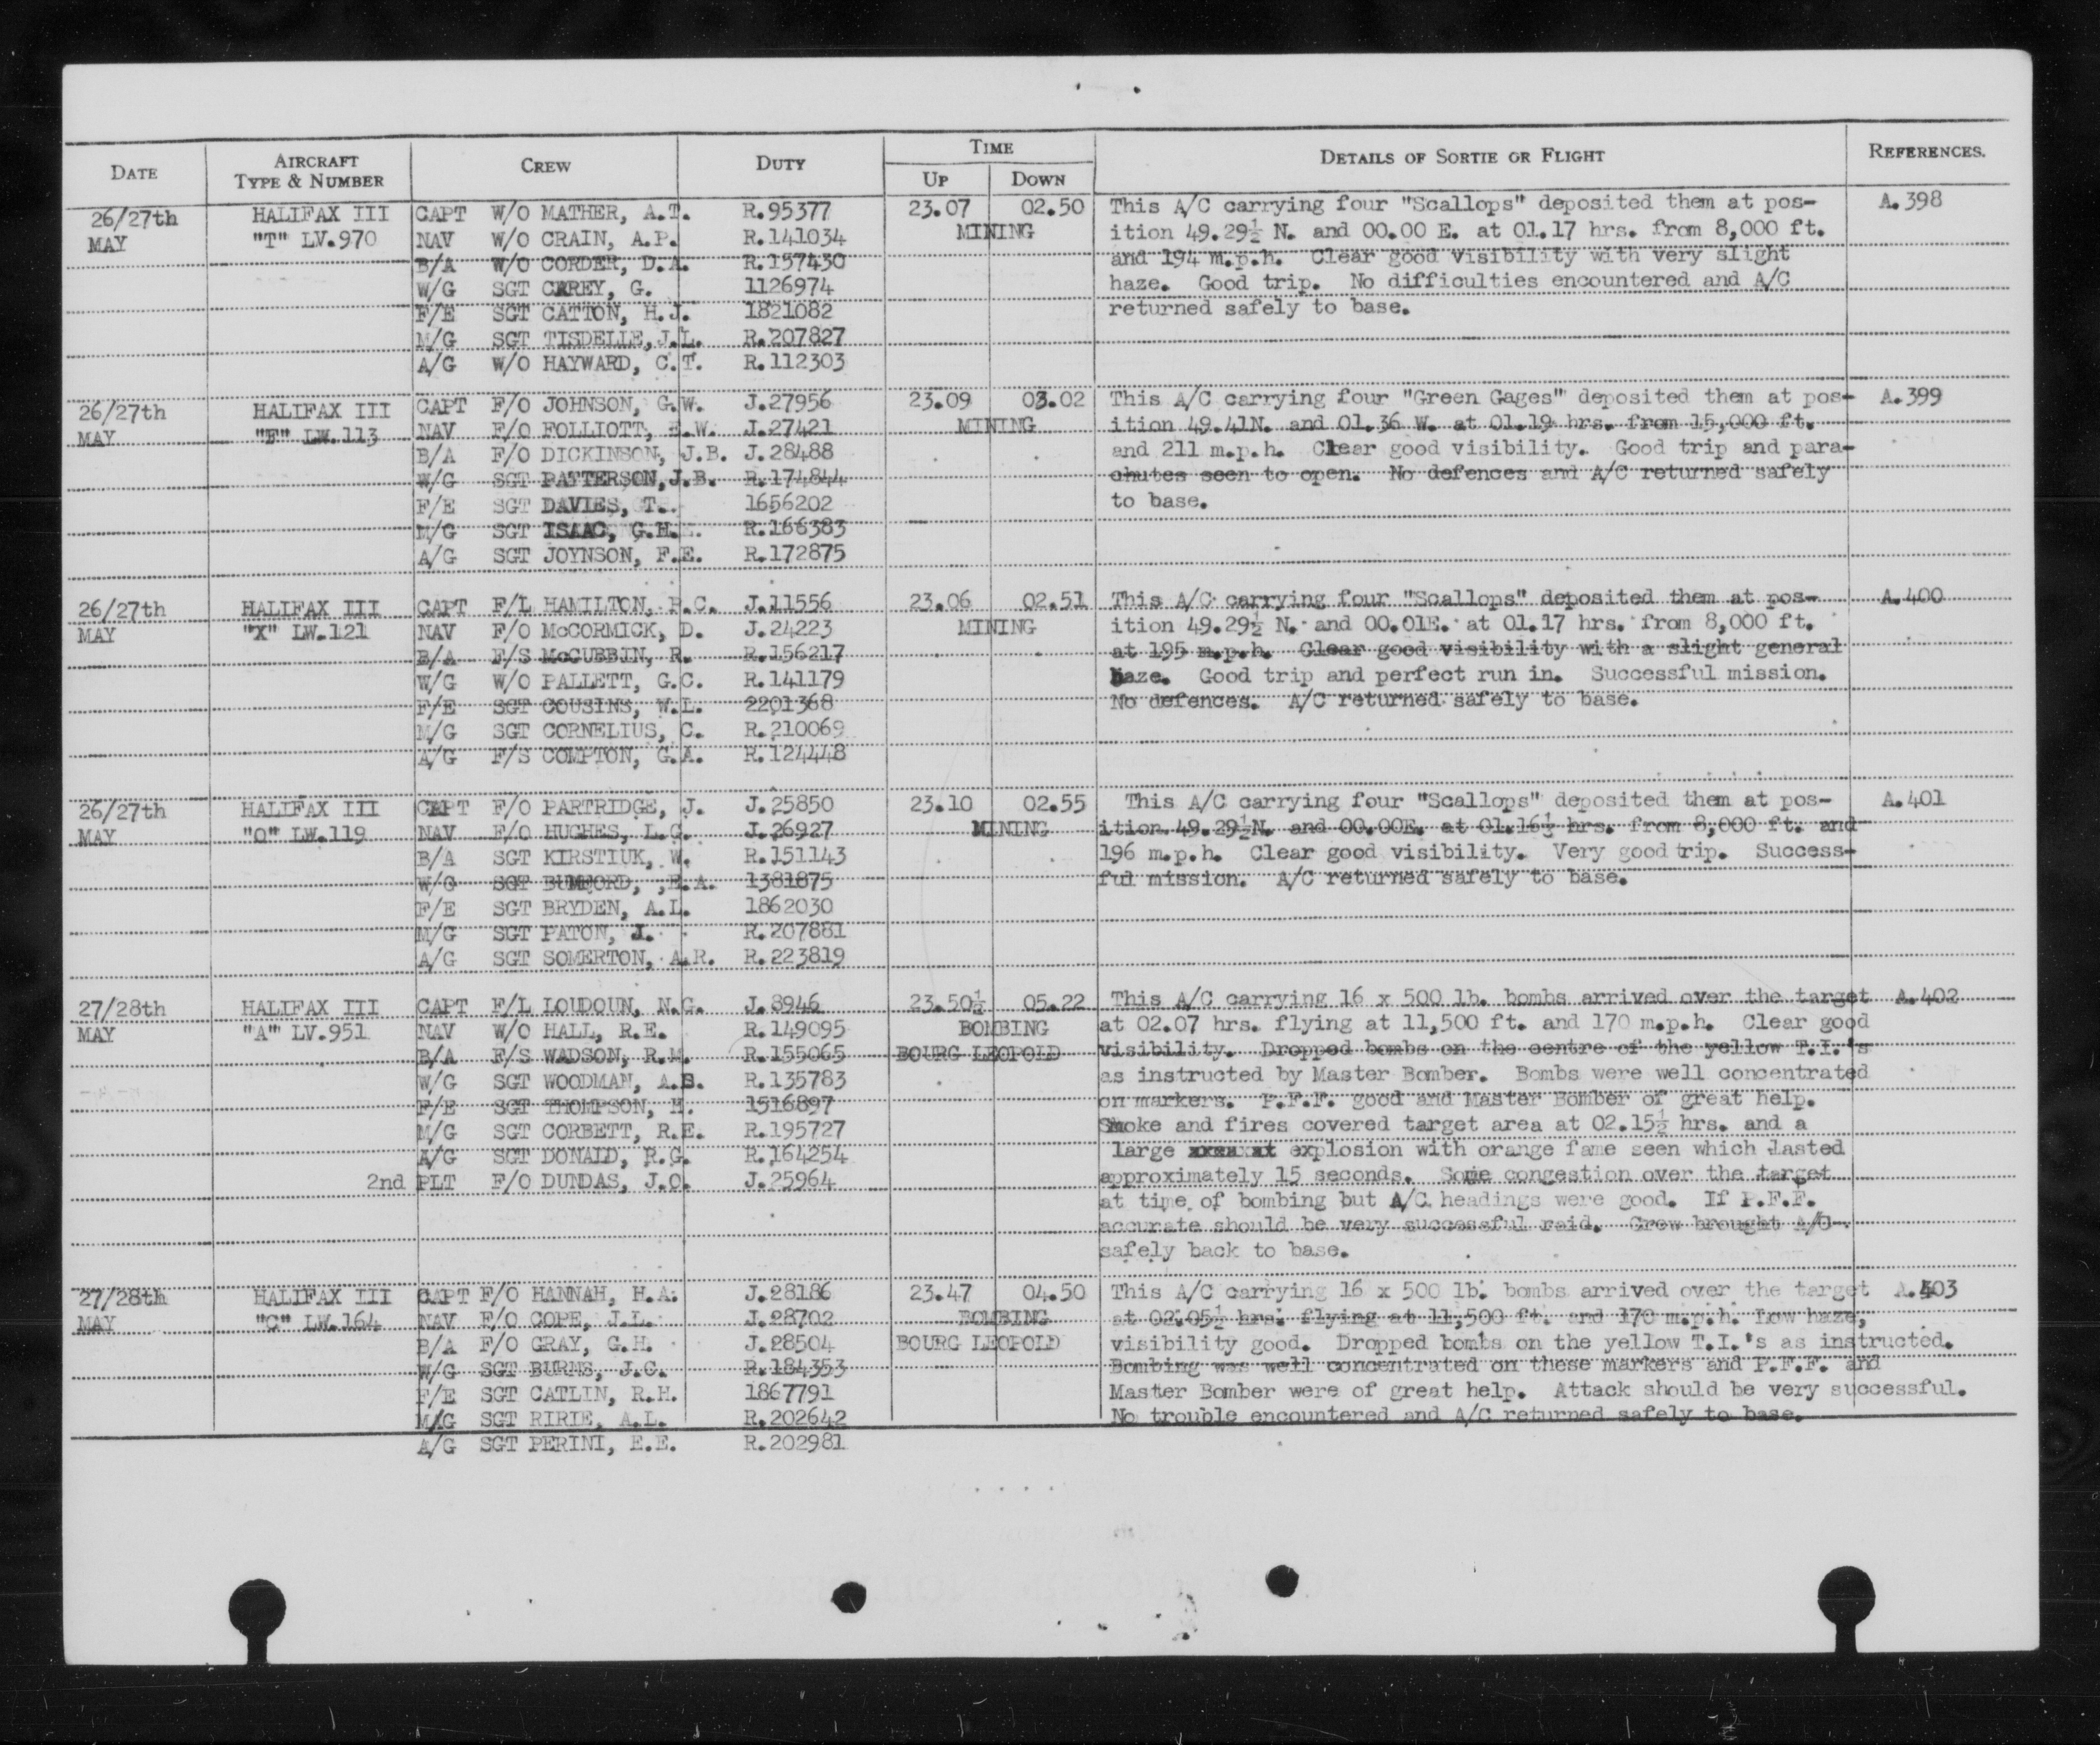 DATE AIRCRAFT TYPE & NUMBER CREW DUTY TIME UP DOWN DETAILS OF SORTIE OR FLIGHT REFERENCES.
26/27th HALIFAX III CAPT W/O MATHER, A.T. R.95377 23.07 02.50 This A/C carrying four "Scallops" deposited them at pos- A.398
MAY "T" LV.970 NAV W/O CRAIN, A.P. R.141034 MINING ition 49.29½ N. and 00.00 E. at 01.17 hrs. from 8,000 ft.
B/A W/O CORDER, D.A. R.157430 and 194 m.p.h. Clear good visibility with very slight
W/G SGT CAREY, G. 1126974 haze. Good trip. No difficulties encountered and A/C
F/E SGT CATTON, H.J. 1821082 returned safely to base.
M/G SGT TISDELLE,J.L. R.207827
A/G W/O HAYWARD, C.T. R.112303
26/27th HALIFAX III CAPT F/O JOHNSON, G.W. J.27956 23.09 03.02 This A/C carrying four "Green Gages" deposited them at pos- A.399
MAY LW.113 NAV F/O FOLLIOTT, E.W. J.27421 MINING ition 49.41N. and 01.36 W. at 01.19 hrs. from 15,000 ft.
B/A F/O DICKINSON, J.B. J.28488 and 211 m.p.h. Clear good visibility. Good trip and para-
W/G SGT PATTERSON,J.B. R.174844 chutes seen to open. No defences and A/C returned safely
F/E SGT DAVIES, T. 1656202 to base.
M/G SGT ISAAC, G.H. R.166383
A/G SGT JOYNSON, F.E. R.172875
26/27th HALIFAX III CAPT F/L HAMILTON, R.C. J.11556 23.06 02.51 This A/C carrying four "Scallops" deposited them at pos- A.400
MAY "X" LW.121 NAV F/O McCORMICK, D. J.24223 MINING ition 49.29½ N. and 00.01E. at 01.17 hrs. from 8,000 ft.
B/A F/S McCUBBIN, R. R.156217 at 195 m.p.h. Clear good visibility with a slight general
W/G W/O PALLETT, G.C. R.141179 haze. Good trip and perfect run in. Successful mission.
F/E SGT COUSINS, W.L. 2201368 No defences. A/C returned safely to base.
M/G SGT CORNELIUS, C. R.210069
A/G F/S COMPTON, G.A. R.124448
26/27th HALIFAX III CAPT F/O PARTRIDGE, J. J.25850 23.10 02.55 This A/C carrying four "Scallops" deposited them at pos- A.401
MAY "O" LW.119 NAV F/O HUGHES, L.G. J.26927 MINING ition 49.29½N. and 00.00E. at 01.16½ hrs. from 8,000 ft. and
B/A SGT KIRSTIUK, W. R.151143 196 m.p.h. Clear good visibility. Very good trip. Success-
W/G SGT BUMFORD, ,E.A. 1381875 ful mission. A/C returned safely to base.
F/E SGT BRYDEN, A.L. 1862030
M/G SGT PATON, J. R.207881
A/G SGT SOMERTON, A.R. R.223819
27/28th HALIFAX III CAPT F/L LOUDOUN, N.G. J.8946 23.50½ 05.22 This A/C carrying 16 x 500 lb. bombs arrived over the target A.402
MAY "A" LV.951 NAV W/O HALL, R.E. R.149095 BOMBING at 02.07 hrs. flying at 11,500 ft. and 170 m.p.h. Clear good
B/A F/S WADSON, R.M. R.155065 BOURG LEOPOLD visibility. Dropped bombs on the centre of the yellow T.I.'s
W/G SGT WOODMAN, A.S. R.135783 as instructed by Master Bomber. Bombs were well concentrated
F/E SGT THOMPSON, H. 1516897 on markers. P.F.F. good and Master Bomber of great help.
M/G SGT CORBETT, R.E. R.195727 Smoke and fires covered target area at 02.15½ hrs. and a
A/G SGT DONALD, R.G. R.164254 large explosion with orange fame seen which lasted
2nd PLT F/O DUNDAS, J.O. J.25964 approximately 15 seconds. Some congestion over the target
at time of bombing but A/C headings were good. If P.F.F.
accurate should be very successful raid. Crew brought A/C
safely back to base.
27/28th HALIFAX III CAPT F/O HANNAH, H.A. J.28186 23.47 04.50 This A/C carrying 16 x 500 lb. bombs arrived over the target A.403
MAY "C" LW.164 NAV F/O COPE, J.L. J.28702 BOMBING at 02.05½ hrs. flying at 11,500 ft. and 170 m.p.h. Low haze,
B/A F/O GRAY, G.H. J.28504 BOURG LEOPOLD visibility good. Dropped bombs on the yellow T.I.'s as instructed.
W/G SGT BURNS, J.C. R.184353 Bombing was well concentrated on these markers and P.F.F. and
F/E SGT CATLIN, R.H. 1867791 Master Bomber were of great help. Attack should be very successful.
M/G SGT RIRIE, A.L. R.202642 No trouble encountered and A/C returned safely to base.
A/G SGT PERINI, E.E. R.202981